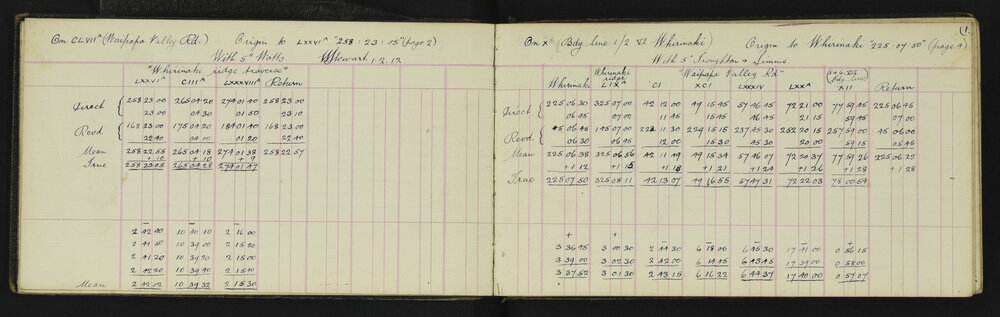 On CLVIIᴬ (Waipapa Valley Rd.) Origin to LXXVIᴬ "258:23:05" (page 2)
With 5" Watts
Stewart 1.2.12
"Whirinaki ridge traverse"
LXXVIᴬ CIIIᴬ LXXXVIIIᴬ Return
Direct { 258 23 00 265 04 20 274 01 40 258 23 00
23 00 04 30 01 50 23 10
Revd { 168 23 00 175 04 20 184 01 40 168 23 00
22 40 04 00 01 20 22 40
Mean 258 22 55 265 04 18 274 01 38 258 22 57
+10 +10 +9
True 258 23 05 265 04 28 274 01 47
— — —
2 42 40 10 40 10 2 16 00
2 41 50 10 39 00 2 15 20
2 41 20 10 39 20 2 15 00
2 42 20 10 39 40 2 15 40
Mean 2 42 02 10 39 32 2 15 30
1
On X (Bdy. line 1/2 VI Whirinaki) Origin to Whirinaki "225.07.50" (page 4)
With 5" Troughton & Simms
"Waipapa Valley Rd"
Whirinaki ridge
Bdy. line
Whirinaki LIXᴬ CI XCI LXXXIV LXXᴬ XII Return
Direct { 225 06 30 325 07 00 42 12 00 49 15 45 57 46 45 72 21 00 77 59 45 225 06 45
06 45 07 02 11 45 15 45 46 45 21 15 59 45 07 00
Revd. { 45 06 45 145 07 00 222 11 30 229 15 15 237 45 30 252 20 15 257 59 00 45 06 00
06 30 06 45 12 00 15 30 45 30 20 00 59 15 05 45
Mean 225 06 38 325 06 56 42 11 49 49 15 34 57 46 07 72 20 37 77 59 26 225 06 22
+1 12 +1 15 +1 18 +1 21 +1 24 +1 26 +1 28 +1 28
True 225 07 50 325 08 11 42 13 07 49 16 55 57 47 31 72 22 03 78 00 54
+ + — — — — —
3 36 45 3 00 30 2 44 30 6 18 00 6 45 30 17 41 00 0 56 15
3 39 00 3 02 30 2 42 00 6 14 45 6 43 45 17 39 00 0 58 00
3 37 52 3 01 30 2 43 15 6 16 22 6 44 37 17 40 00 0 57 07